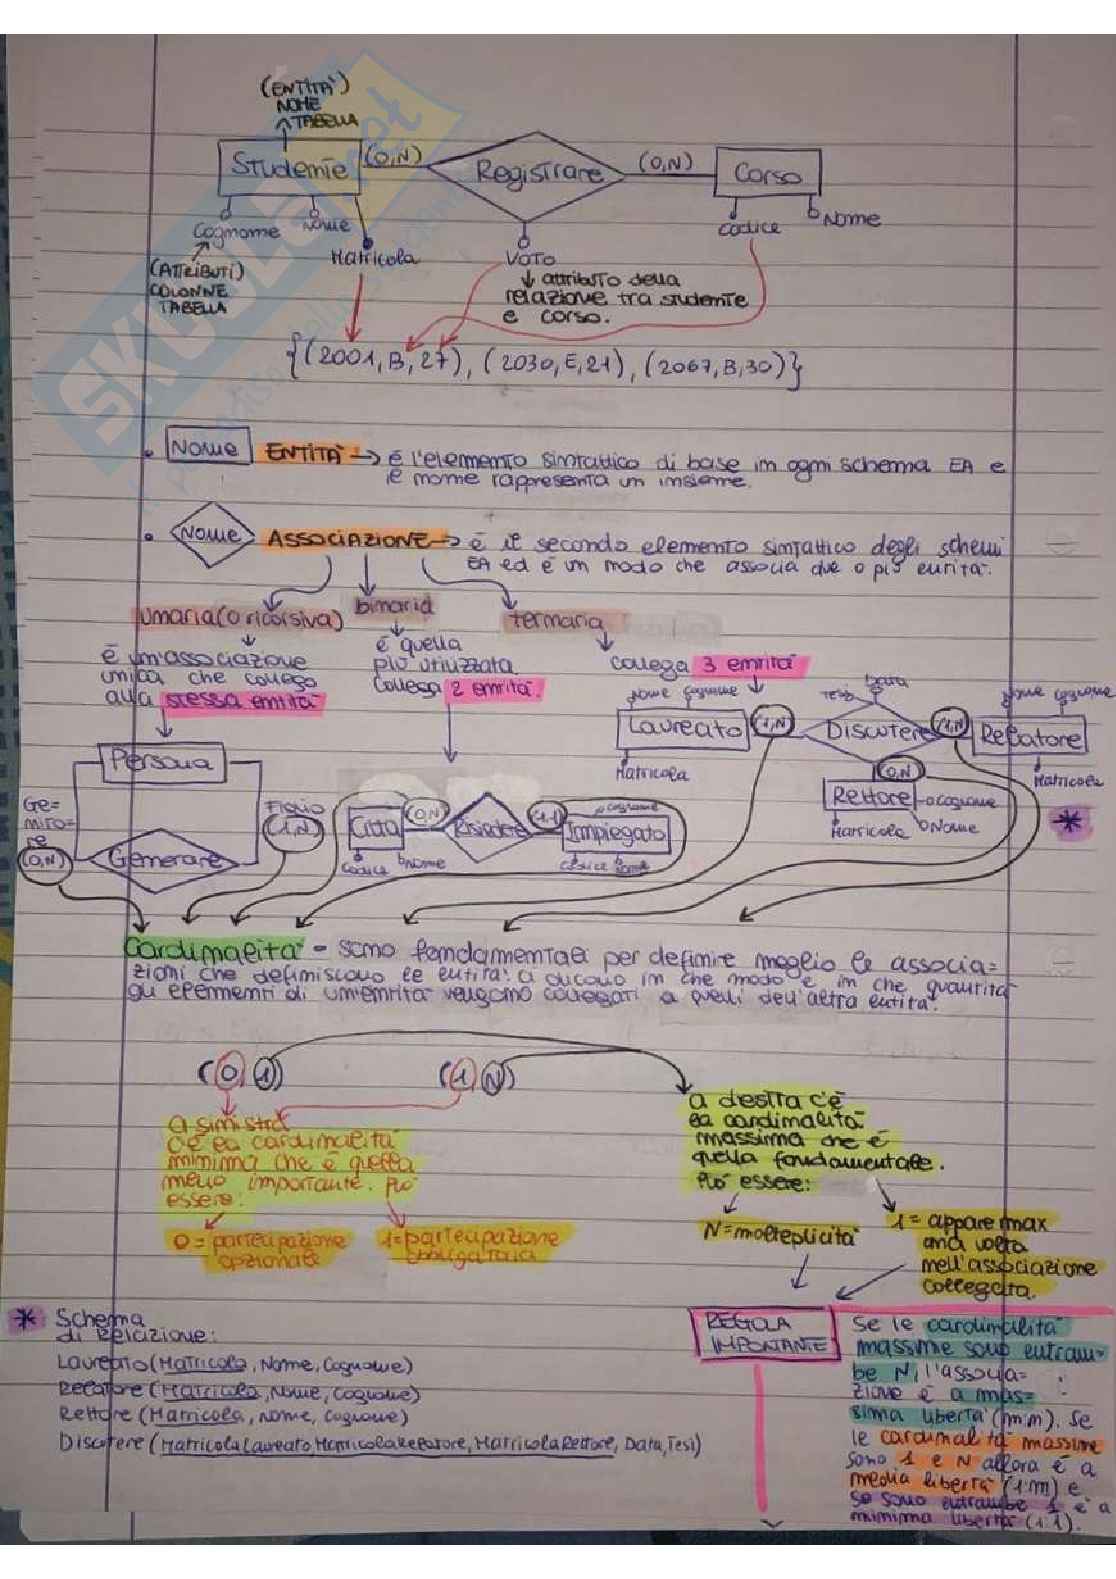 (ENTITA')
NOME
TABELLA
Studente (0,N) Registrare (0,N) Corso
Cognome Nome Matricola Voto codice Nome
(ATTRIBUTI)
COLONNE
TABELLA
↓ attributo della
relazione tra studente
e corso.
{(2001,B,27), (2030,E,21), (2067,B,30)}
SKUOLA.net
• Nome ENTITA' → è l'elemento sintattico di base in ogni schema EA e
il nome rappresenta un insieme.
• Nome ASSOCIAZIONE → è il secondo elemento sintattico degli schemi
EA ed è un modo che associa due o più entità.
unaria (o ricorsiva)
è un'associazione
unica che collega
alla stessa entità
binaria
è quella
più utilizzata
Collega 2 entità.
ternaria
collega 3 entità
Persona
Genitore
(0,N)
Figlio
(1,N)
Generare
Città (0,N) Risiedere (1,1) Impiegato
codice Nome
cognome
codice Nome
Nome Cognome Tesi Data Nome Cognome
Laureato (1,N) Discutere (1,N) Relatore
Matricola (0,N) Matricola
Rettore cognome
Matricola Nome
*
Cardinalità - sono fondamentali per definire meglio le associa=
zioni che definiscono le entità: ci dicono in che modo e in che quantità
gli elementi di un'entità vengono collegati a quelli dell'altra entità.
(0,1) (1,N)
a sinistra
c'è la cardinalità
minima che è quella
meno importante. Può
essere:
0 = partecipazione
opzionale
1=partecipazione
obbligatoria
a destra c'è
la cardinalità
massima che è
quella fondamentale.
Può essere:
N=molteplicità
1 = appare max
una volta
nell'associazione
collegata.
* Schema
di Relazione:
Laureato (Matricola, Nome, Cognome)
Relatore (Matricola, Nome, Cognome)
Rettore (Matricola, Nome, Cognome)
Discutere (MatricolaLaureato, MatricolaRelatore, MatricolaRettore, Data, Tesi)
REGOLA
IMPORTANTE
Se le cardinalità
massime sono entram=
be N, l'associa=
zione è a mas=
sima libertà (n:m). Se
le cardinalità massime
sono 1 e N allora è a
media libertà (1:m) e
se sono entrambe 1 è a
minima libertà (1:1).